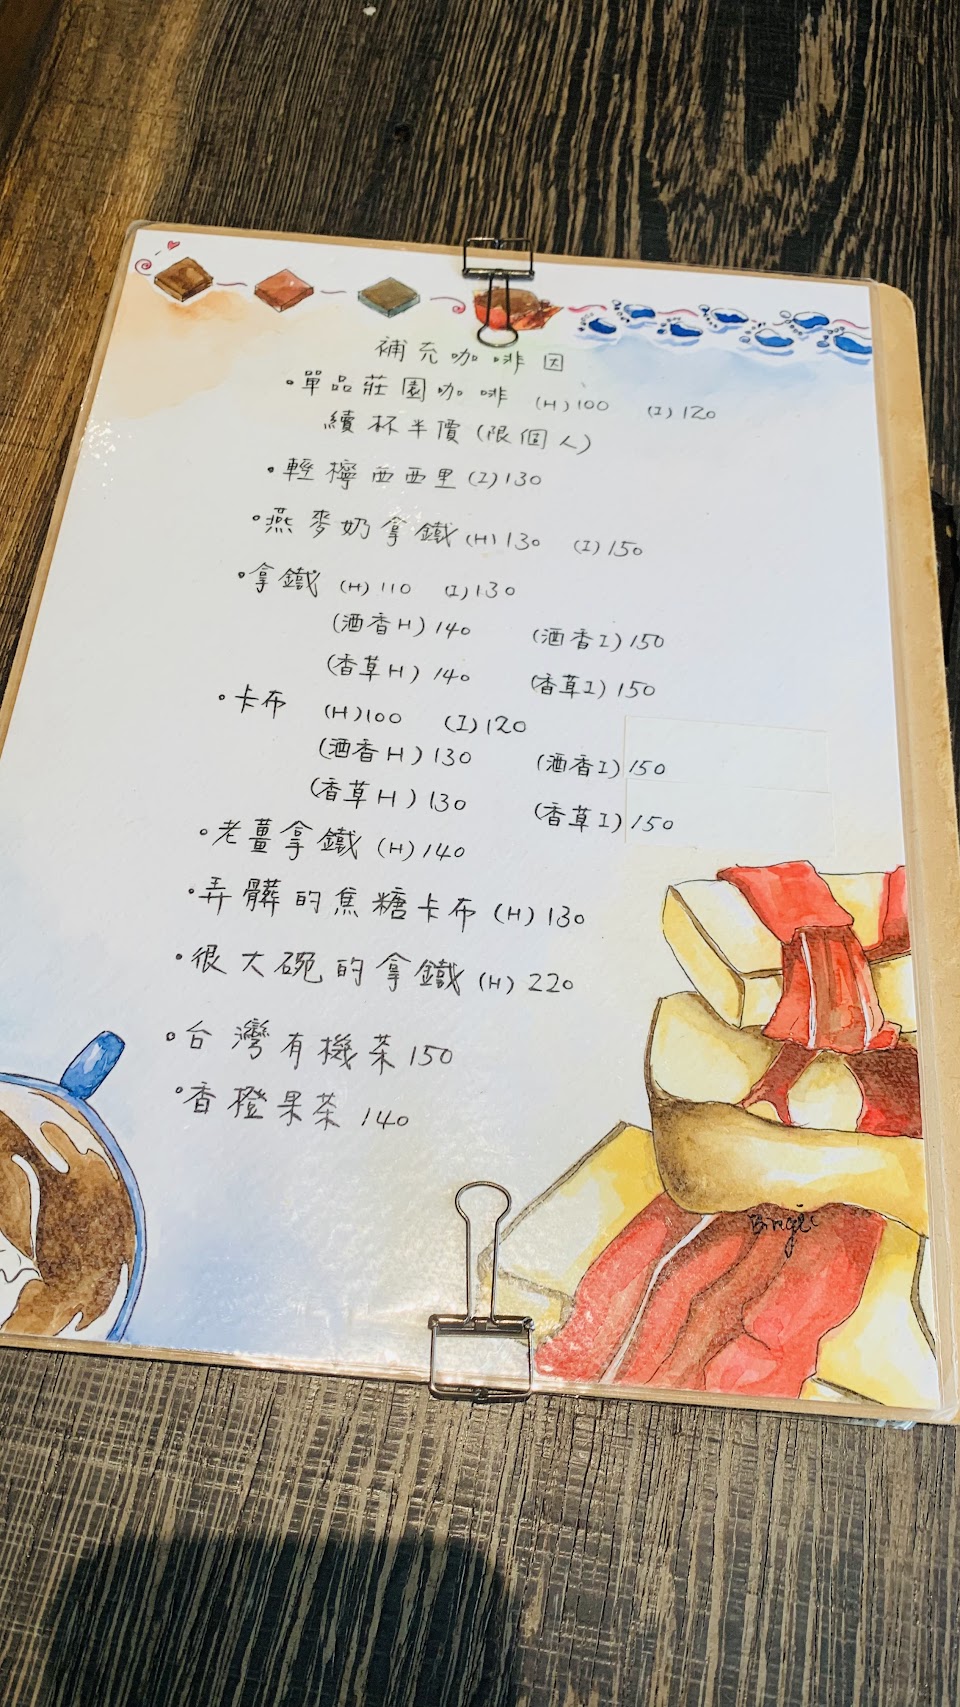 補充咖啡因
•單品莊園咖啡 (H)100 (I)120
續杯半價(限個人)
•輕檸西西里(I)130
•燕麥奶拿鐵(H)130 (I)150
•拿鐵 (H)110 (I)130
(酒香H)140 (酒香I)150
(香草H)140 (香草I)150
•卡布 (H)100 (I)120
(酒香H)130 (酒香I)150
(香草H)130 (香草I)150
•老薑拿鐵(H)140
•弄髒的焦糖卡布(H)130
•很大碗的拿鐵(H)220
•台灣有機茶150
•香橙果茶 140